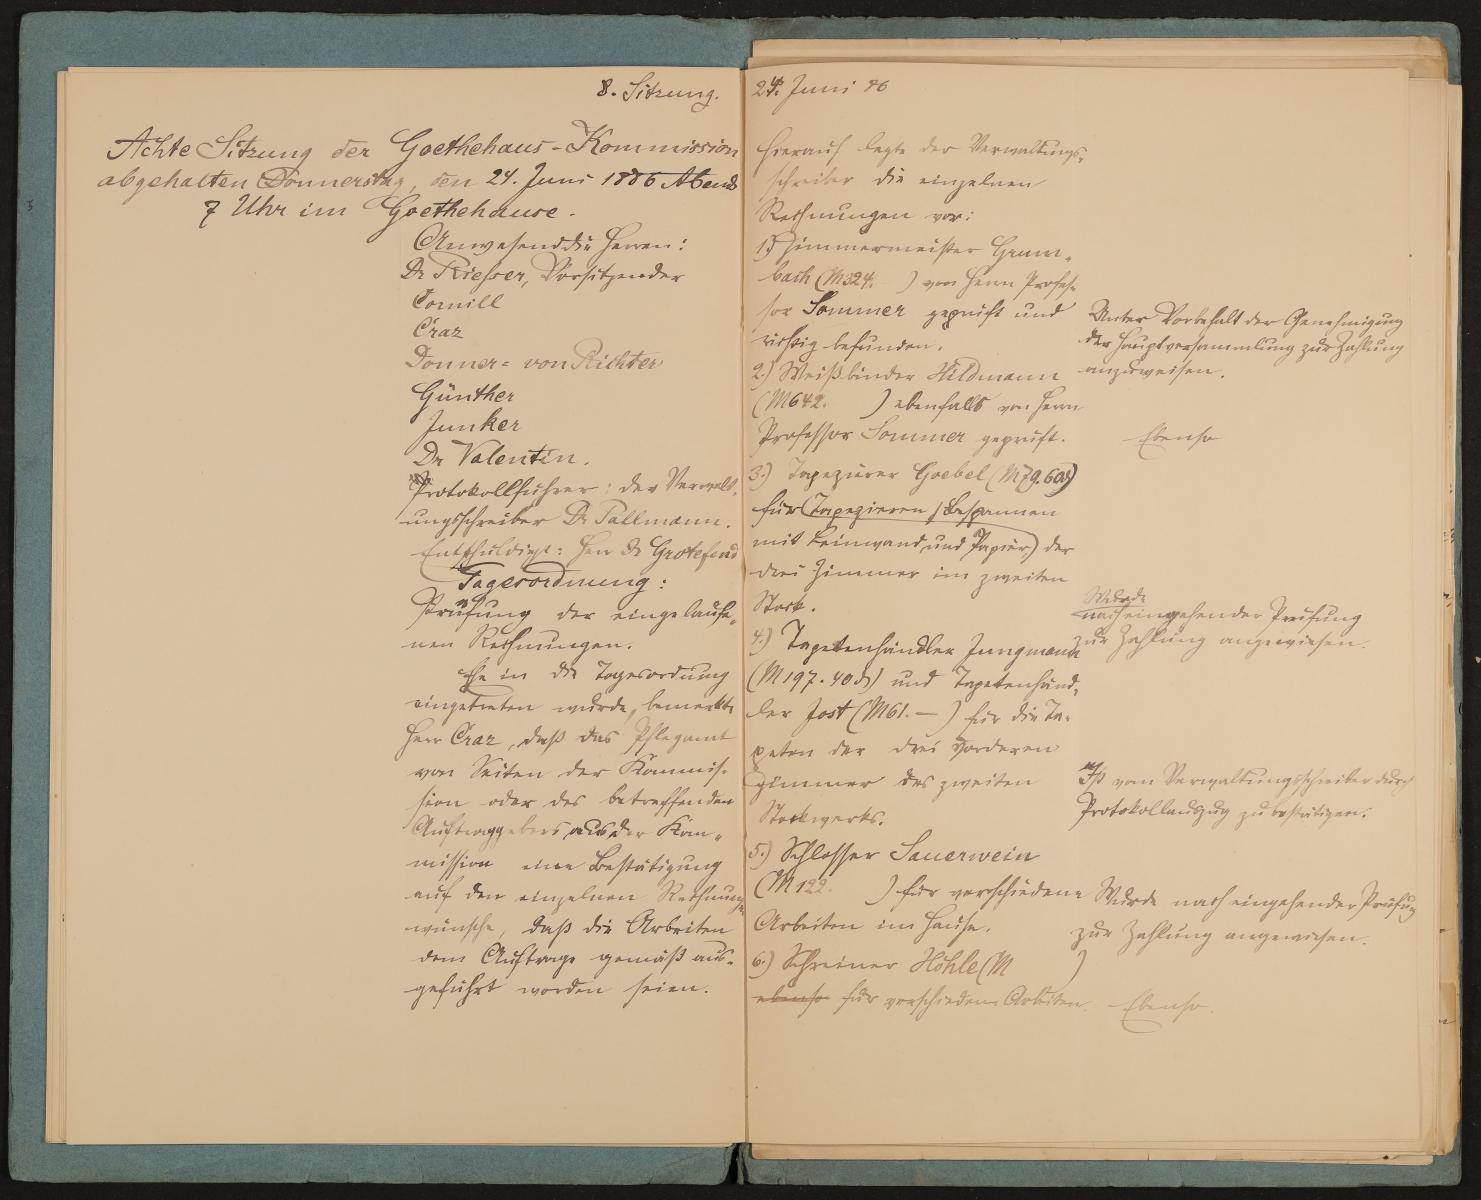 8. Sitzung.
Achte Sitzung der Goethehaus-Kommission
abgehalten Donnerstag, den 24. Juni 1886 Abends
7 Uhr im Goethehause.
Anwesend die Herren:
Dr Riesser, Vorsitzender
Cornill
Craz
Donner-von Richter
Günther
Junker
Dr Valentin.
Protokollführer: der Verwalt-
ungsschreiber Dr Pallmann.
Entschuldigt: Herr Dr Grotefend
Tagesordnung:
Prüfung der eingelaufe-
nen Rechnungen.
Ehe in die Tagesordnung
eingetreten wurde, bemerkte
Herr Craz, daß das Pflegamt
von Seiten der Kommis-
sion oder des betreffenden
Auftraggebers aus der Kom-
mission eine Bestätigung
auf den einzelnen Rechnungen
wünsche, daß die Arbeiten
dem Auftrage gemäß aus-
geführt worden seien.
24. Juni 86
Hierauf legte der Verwaltungs-
schreiber die einzelnen
Rechnungen vor:
1.) Zimmermeister Grum-
bach (M 324. ) von Herrn Profes-
sor Sommer geprüft und
richtig befunden.
2.) Weißbinder Hildmann
(M 642. ) ebenfalls von Herrn
Professor Sommer geprüft.
3.) Tapezierer Goebel (M 79.60 ₰)
für (Tapezieren / Bespannen
mit Leinwand und Papier) der
drei Zimmer im zweiten
Stock.
4.) Tapetenhändler Jungmann
(M 197.40 ₰) und Tapetenhänd-
ler Jost (M 61. — ) für die Ta-
peten der drei vorderen
Zimmer des zweiten
Stockwerks.
5.) Schlosser Sauerwein
(M 122. ) für verschiedene
Arbeiten im Hause.
6.) Schreiner Höhle (M )
ebenso für verschiedene Arbeiten.
Unter Vorbehalt der Genehmigung
der Hauptversammlung zur Zahlung
anzuweisen.
Ebenso
Wurde
nach eingehender Prüfung
zur Zahlung angewiesen.
Ist vom Verwaltungsschreiber durch
Protokollauszug zu bestätigen.
Wurde nach eingehender Prüfung
zur Zahlung angewiesen.
Ebenso.